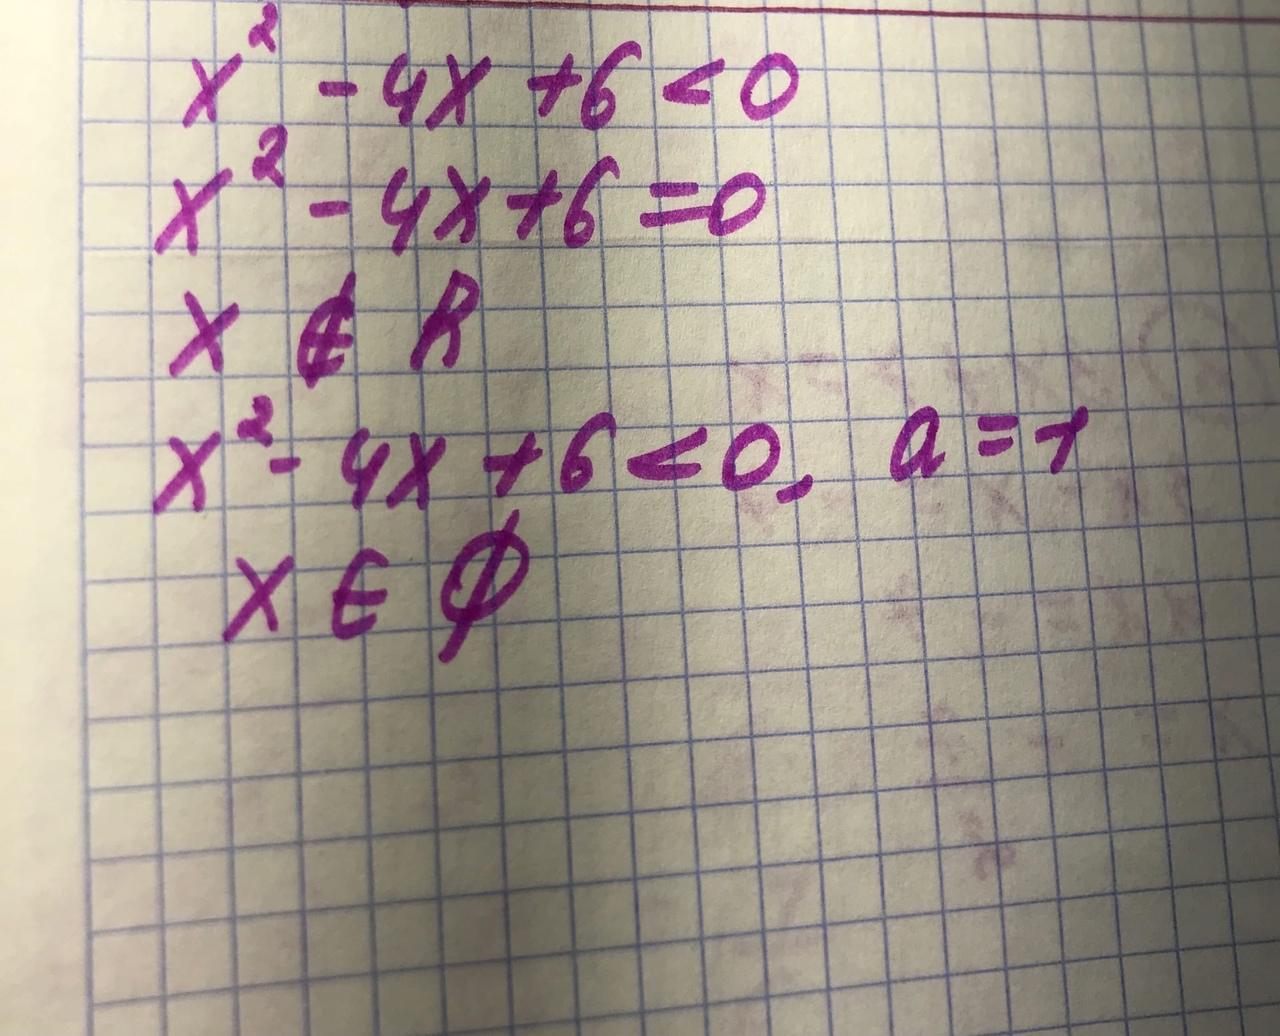 x² - 4x + 6 < 0
x² - 4x + 6 = 0
x ∉ R
x² - 4x + 6 < 0, a = 1
x ∈ ∅